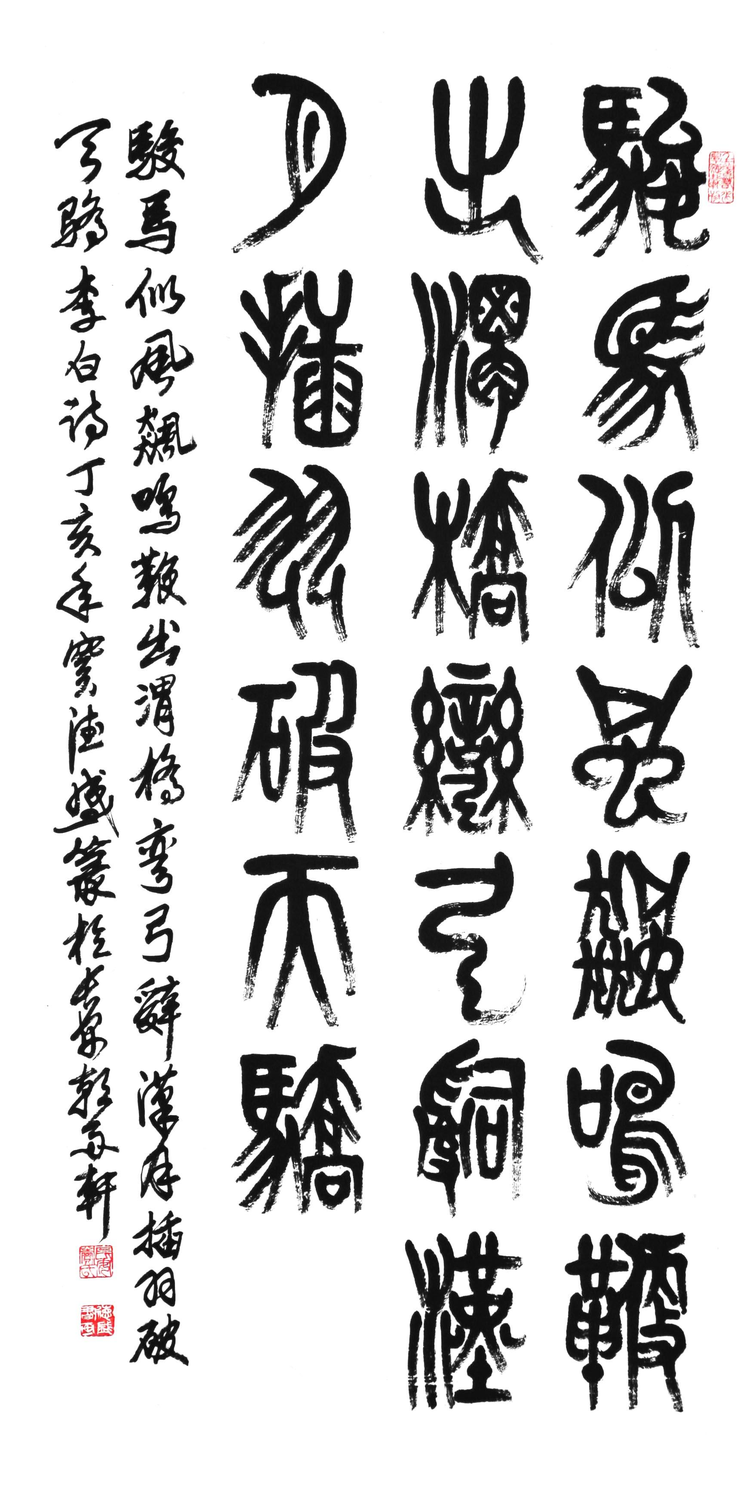 駿馬似風飆鳴鞭
出渭橋彎弓辭漢
月插羽破天驕
駿馬似風飆鳴鞭出渭橋弯弓辭漢月插羽破
天驕李白詩丁亥年寶德盛篆於京朝軒